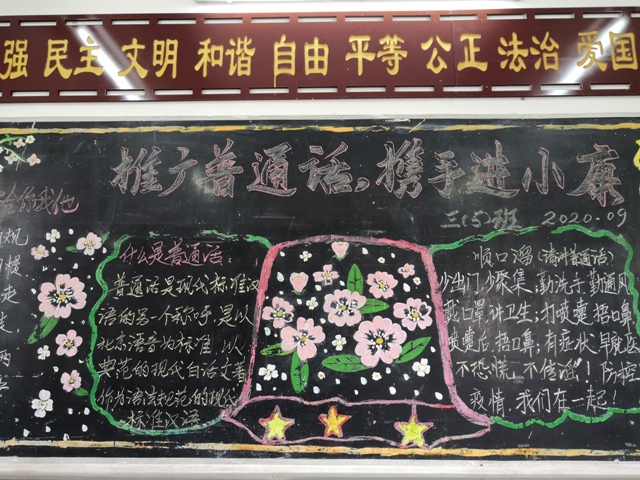 强 民主 文明 和谐 自由 平等 公正 法治 爱国
推广普通话，携手进小康
三(5)班 2020.09
你我他
观
慢
走
两
什么是普通话：
普通话是现代标准汉
语的另一个称呼，是以
北京语音为标准，以
典范的现代白话文著
作为语法规范的现代
标准汉语
顺口溜（请讲普通话）
少出门，少聚集，勤洗手勤通风
戴口罩讲卫生；打喷嚏捂口鼻
喷嚏后捂口鼻；有症状早就医
不恐慌，不传谣！防控
疫情，我们在一起！